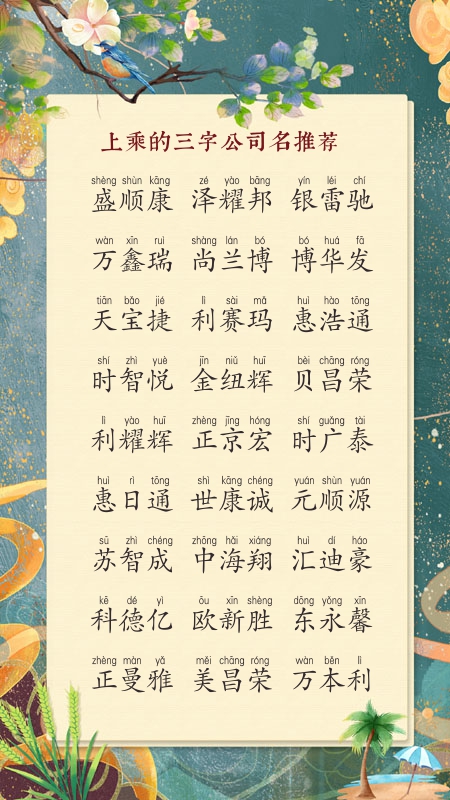 上乘的三字公司名推荐
shèng shùn kāng zé yào bāng yín léi chí
盛顺康 泽耀邦 银雷驰
wàn xīn ruì shàng lán bó bó huá fā
万鑫瑞 尚兰博 博华发
tiān bǎo jié lì sài mǎ huì hào tōng
天宝捷 利赛玛 惠浩通
shí zhì yuè jīn niǔ huī bèi chāng róng
时智悦 金纽辉 贝昌荣
lì yào huī zhèng jīng hóng shí guǎng tài
利耀辉 正京宏 时广泰
huì rì tōng shì kāng chéng yuán shùn yuán
惠日通 世康诚 元顺源
sū zhì chéng zhōng hǎi xiáng huì dí háo
苏智成 中海翔 汇迪豪
kē dé yì ōu xīn shèng dōng yǒng xīn
科德亿 欧新胜 东永馨
zhèng màn yǎ měi chāng róng wàn běn lì
正曼雅 美昌荣 万本利